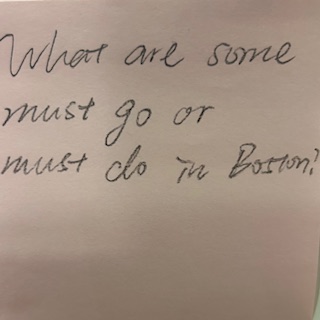 What are some
must go or
must do in Boston?